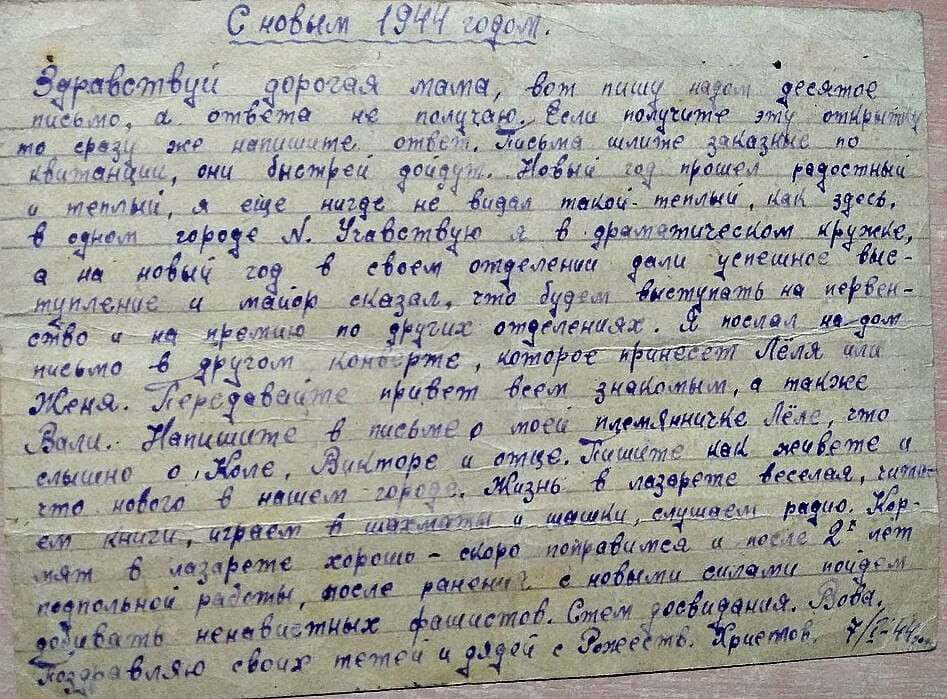 С новым 1944 годом.
Здравствуй дорогая мама, вот пишу надом десятое
письмо, а ответа не получаю. Если получите эту открытку
то сразу же напишите ответ. Письма шлите заказные по
квитанции, они быстрей дойдут. Новый год прошел радостный
и теплый, я еще нигде не видал такой-теплый, как здесь,
в одном городе N. Учавствую я в драматическом кружке,
а на новый год в своем отделении дали успешное выс-
тупление и майор сказал, что будем выступать на первен-
ство и на премию по других отделениях. Я послал на дом
письмо в другом конверте, которое принесет Лёля или
Женя. Передавайте привет всем знакомым, а также
Вали. Напишите в письме о моей племянничке Лёле, что
слышно о Коле, Викторе и отце. Пишите как живете и
что нового в нашем городе. Жизнь в лазарете веселая, чита-
ем книги, играем в шахматы и шашки, слушаем радио. Кор-
мят в лазарете хорошо - скоро поправимся и после 2х лет
подпольной работы, после ранения с новыми силами пойдем
добивать ненавистных фашистов. Стем досвидания. Вова.
Поздравляю своих тетей и дядей с Рожеств. Христов. 7/I-44